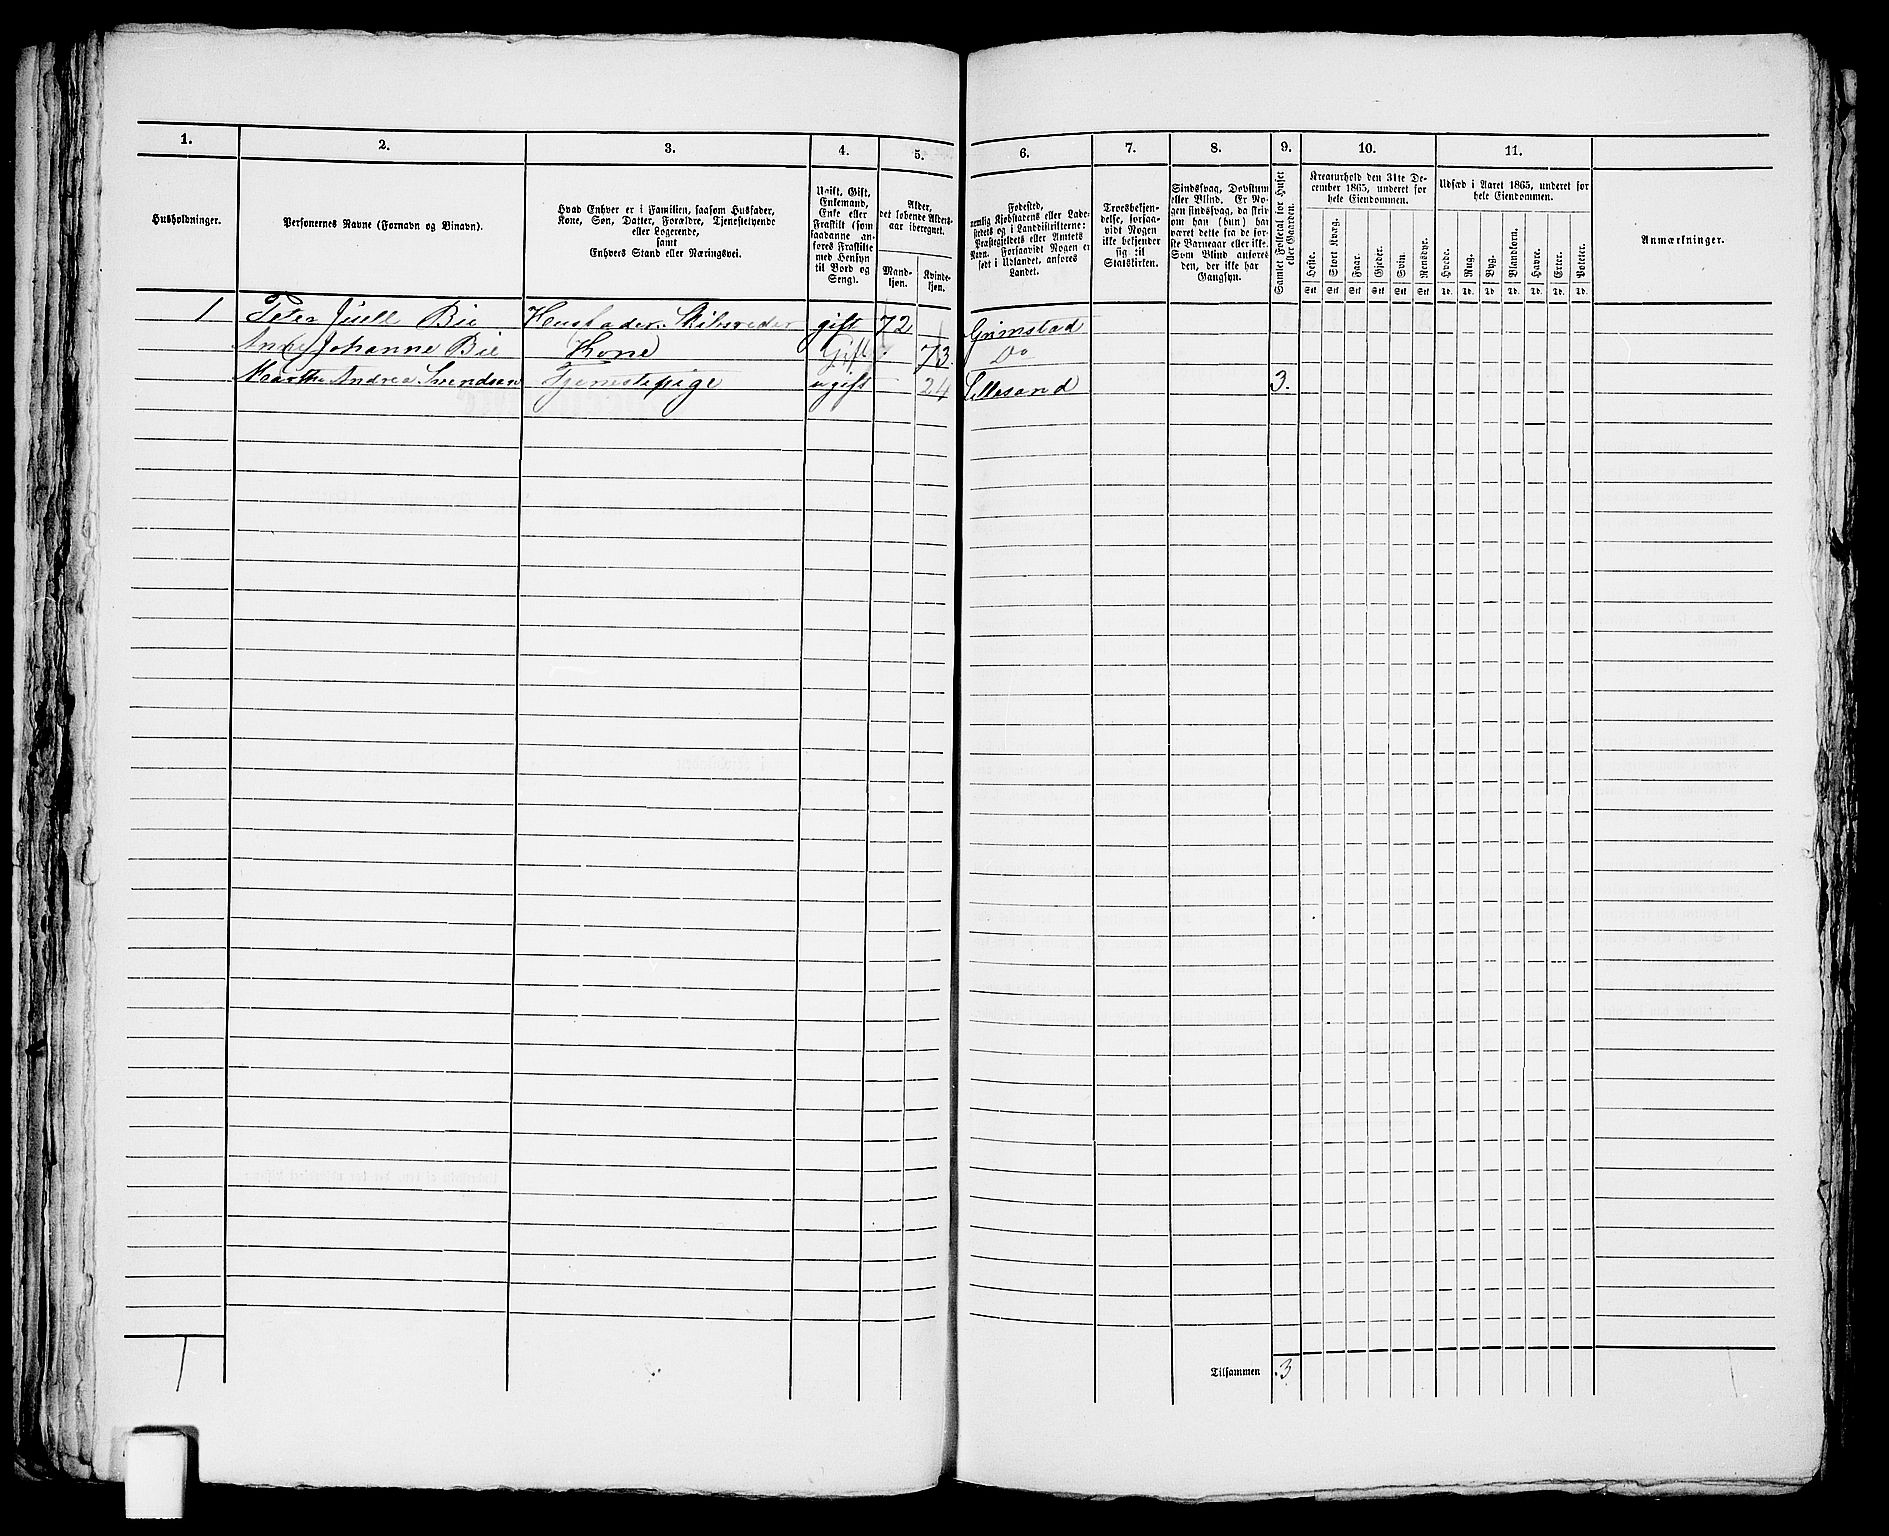 1. 2. 3. 4. 5. 6. 7. 8. 9. 10. 11.
Husholdninger.
Personernes Navne (Fornavn og Binavn).
Hvad Enhver er i Familien, saasom Husfader,
Kone, Søn, Datter, Forældre, Tjenestetyende
eller Logerende,
samt
Enhvers Stand eller Næringsvei.
Ugift, Gift,
Enkemand,
Enke eller
Fraskilt (som
saadanne an-
føres Fraskilte
med Hensyn
til Bord og
Seng).
Alder,
det løbende Alders-
aar iberegnet.
Mand-
kjøn.
Kvinde-
kjøn.
Fødested,
nemlig Kjøbstadens eller Lade-
stedets og i Landdistrikterne:
Præstegjeldets eller Amtets
Navn. Forsaavidt Nogen er
født i Udlandet, anføres
Landet.
Troesbekjen-
delse, forsaa-
vidt Nogen
ikke bekjender
sig til
Statskirken.
Sindssvag, Døvstum
eller Blind. Er No-
gen sindssvag, da skriv
om han (hun) har
været dette fra de før-
ste Barneaar eller ikke.
Som Blind anføres
den, der ikke har
Gangsyn.
Samlet Folketal for Huset
eller Gaarden.
Kreaturhold den 31te De-
cember 1865, underet for
hele Eiendommen.
Heste. Stort Kvæg. Faar. Gjeder. Svin. Rensdyr.
Stk Stk Stk Stk Stk Stk
Udsæd i Aaret 1865, underet for
hele Eiendommen.
Hvede. Rug. Byg. Blandkorn. Havre. Erter. Poteter.
Td. Td. Td Td. Td. Td. Td.
Anmærkninger.
1 Peter Juell Bie Husfader, Skibsreder gift 72 Grimstad
Johanne Bie Kone Gift 73. Do
Andrea Svendsen Tjenestepige ugift 24 Lillesand 3.
1
Tilsammen 3